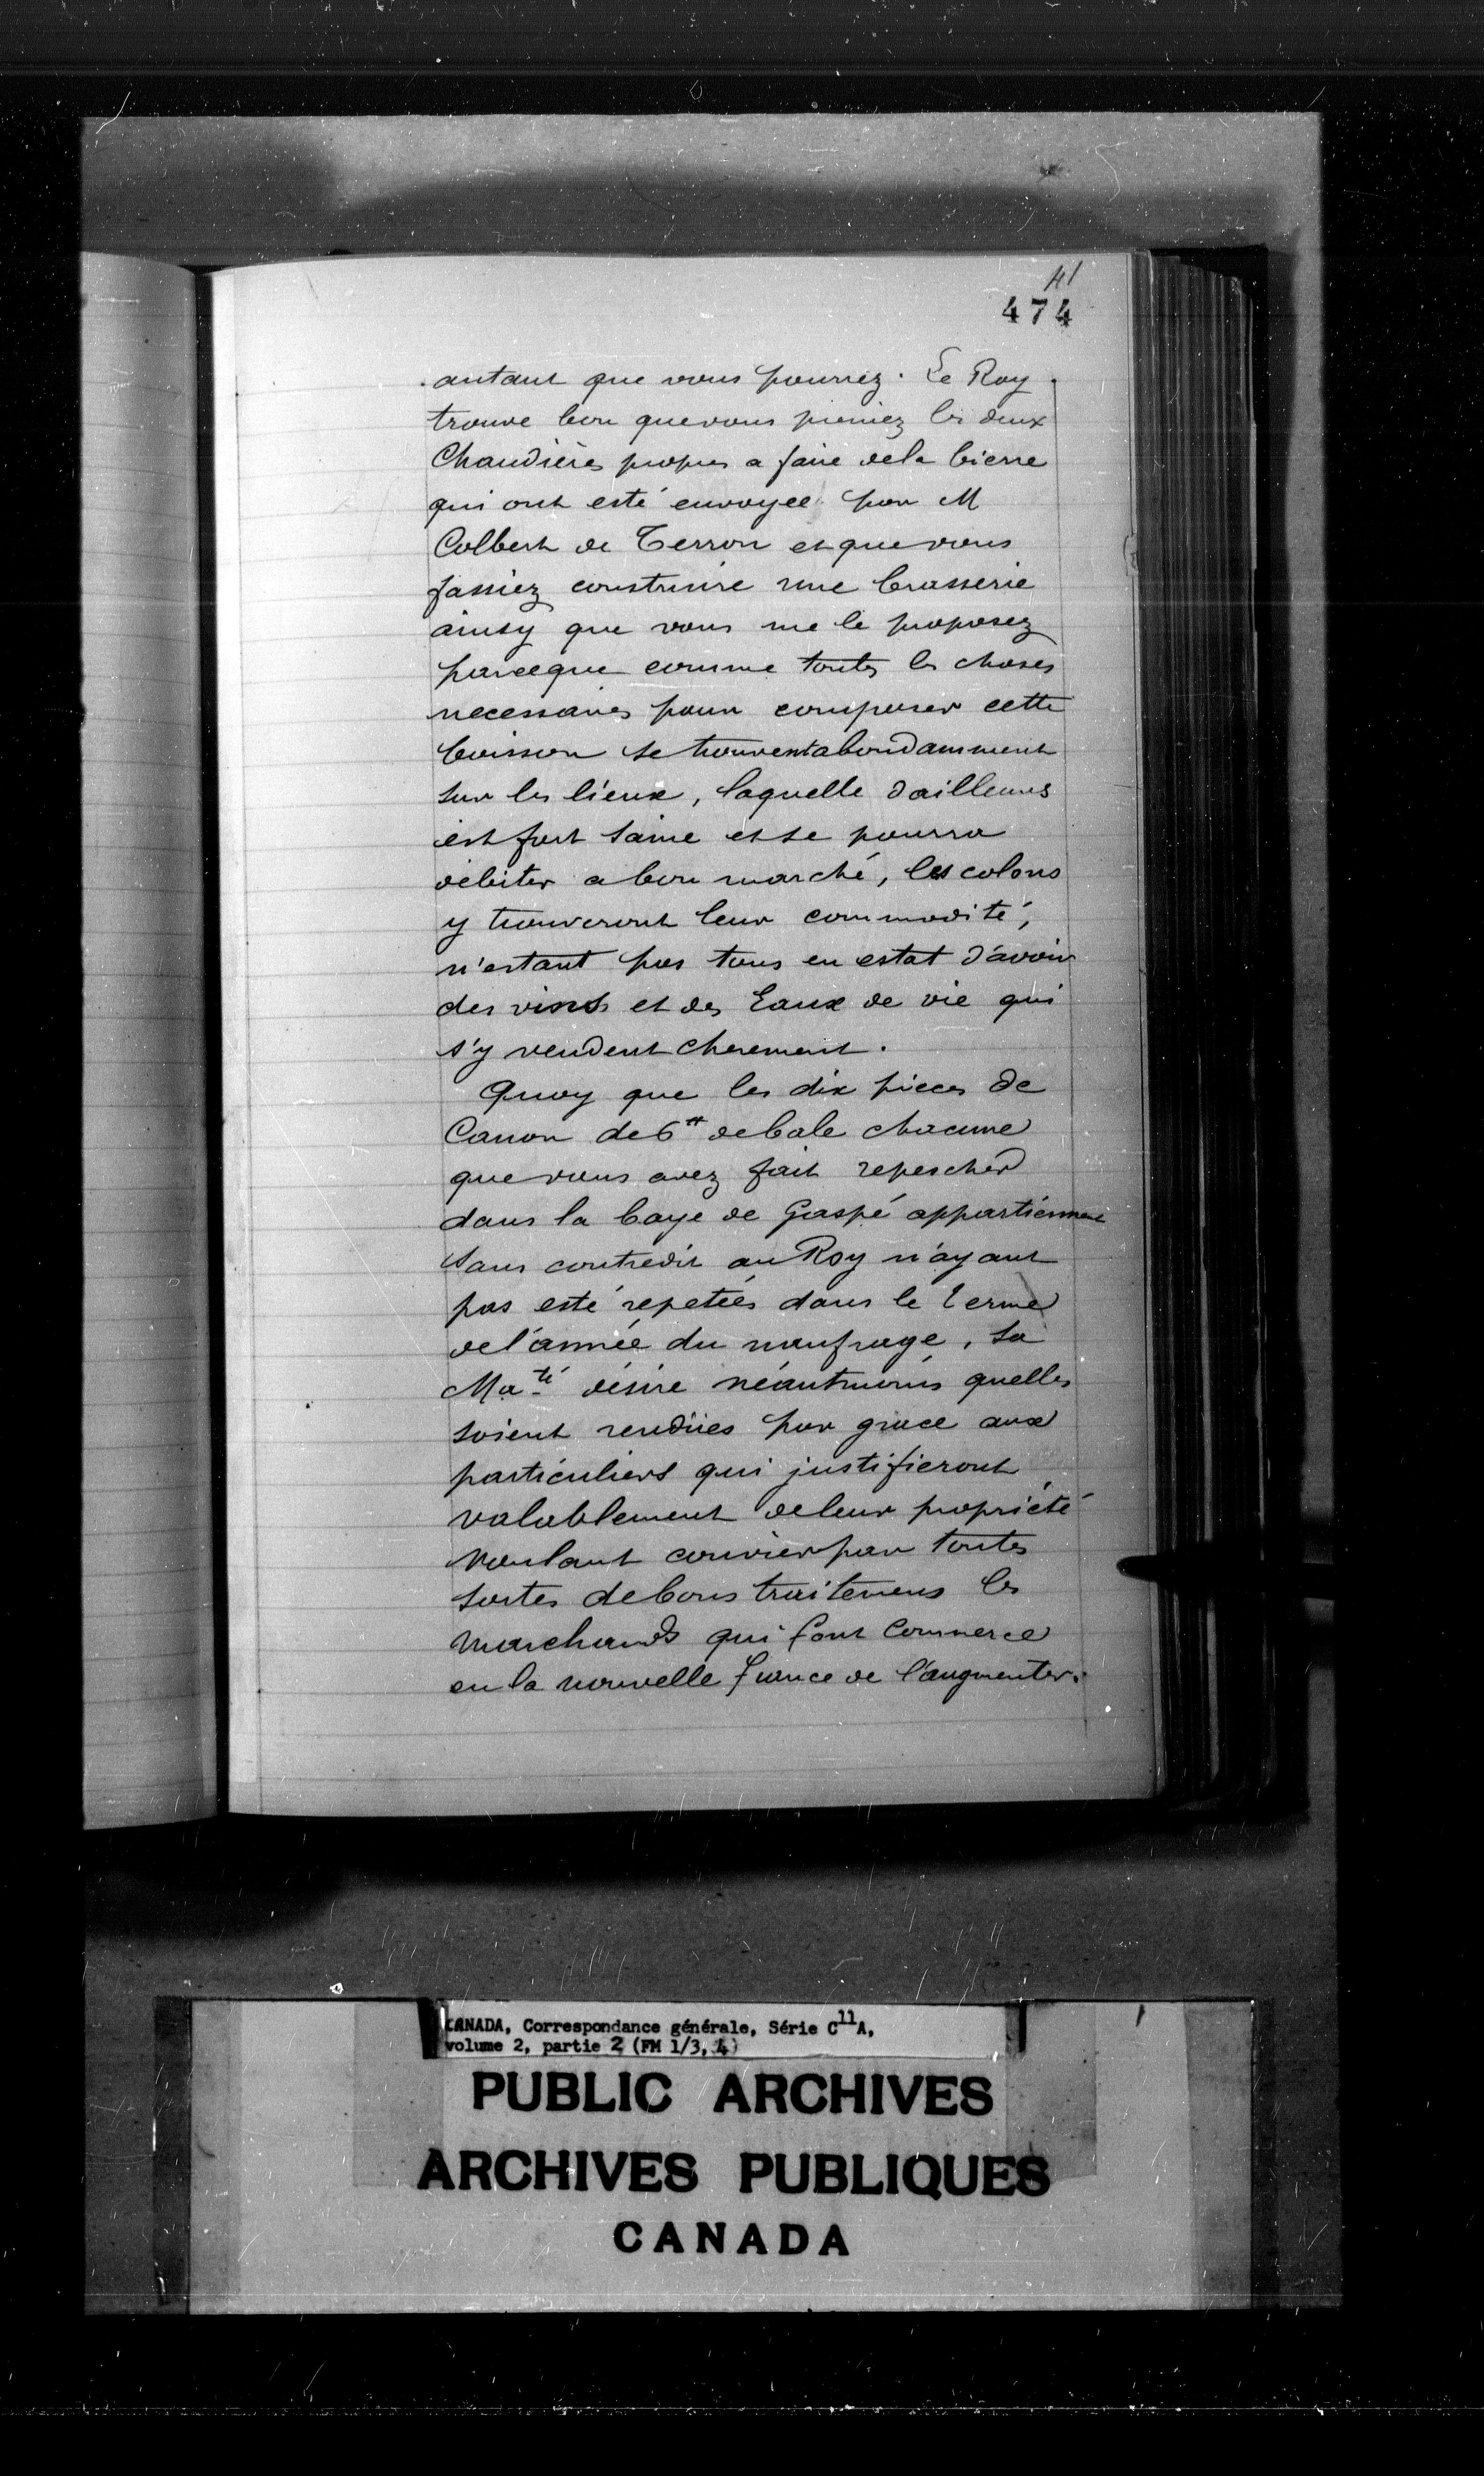 41
474
autant que vous pourrez. Le Roy
trouve bon que vous preniez les deux
Chaudières propres a faire dela bierre
qui ont esté envoyee par M
Colbert de Terron et que vous
fassiez construire une brasserie
ainsy que vous me le proposez
parceque comme toutes les choses
necessaires pour composer cette
boisson se trouvent abondamment
sur les lieux, laquelle dailleurs
est fort saine et se pourra
debiter a bon marché, les colons
y trouveront leur commodité,
n'estant pas tous en estat d'avoir
des vins et des Eaux de vie qui
s'y vendent cherement.
Quoy que les dix pieces de
Canon de 6# debale chacune
que vous avez fait repescher
dans la baye de Gaspé appartiennent
sans contredit au Roy n'ayant
pas esté repetées dans le terme
de l'année du naufrage, Sa
Maté désire néantmoins quelles
soient rendües par grace aux
particuliers qui justifieront
valablement deleur propriété
voulant convier par toutes
sortes debons traitemens les
marchands qui font Commerce
en la nouvelle france de l'augmenter.
CANADA, Correspondance générale, Série C11A,
volume 2, partie 2 (FM 1/3, 4)
PUBLIC ARCHIVES
ARCHIVES PUBLIQUES
CANADA